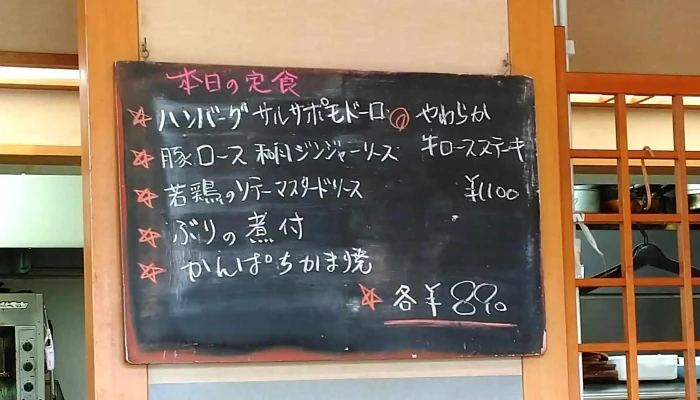 本日の定食
ハンバーグ サルサポモドーロ
豚ロース 和風ジンジャーソース
若鶏のソテーマスタードソース
ぶりの煮付
かんぱちかま焼
各¥890
やわらか
牛ロースステーキ
¥1100